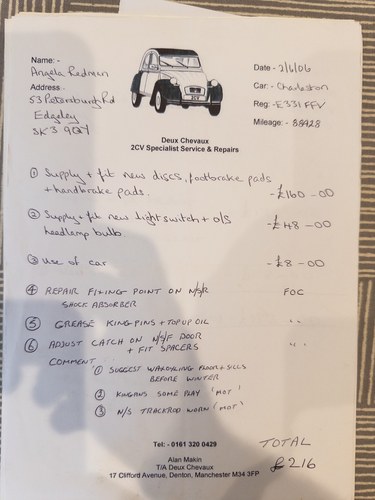 Name: -
Angela Redman
Address -
53 Petersburg Rd
Edgeley
SK3 9QY
Date - 2/6/06
Car: - Charleston
Reg: - E331 FFV
Mileage: - 88928
Deux Chevaux
2CV Specialist Service & Repairs
① Supply + fit new discs, footbrake pads
+ handbrake pads. - £160 - 00
② Supply + fit new light switch + o/s
headlamp bulb - £48 - 00
③ Use of car - £8 - 00
④ REPAIR FIXING POINT ON N/S/R FOC
SHOCK ABSORBER
⑤ GREASE KING PINS + TOP UP OIL " "
⑥ ADJUST CATCH ON N/S/F DOOR
+ FIT SPACERS " "
COMMENT
① SUGGEST WAXOYLING FLOOR & SILLS
BEFORE WINTER
② KINGPINS SOME PLAY 'MOT'
③ N/S TRACKROD WORN 'MOT'
Tel: - 0161 320 0429
TOTAL
£216
Alan Makin
T/A Deux Chevaux
17 Clifford Avenue, Denton, Manchester M34 3FP